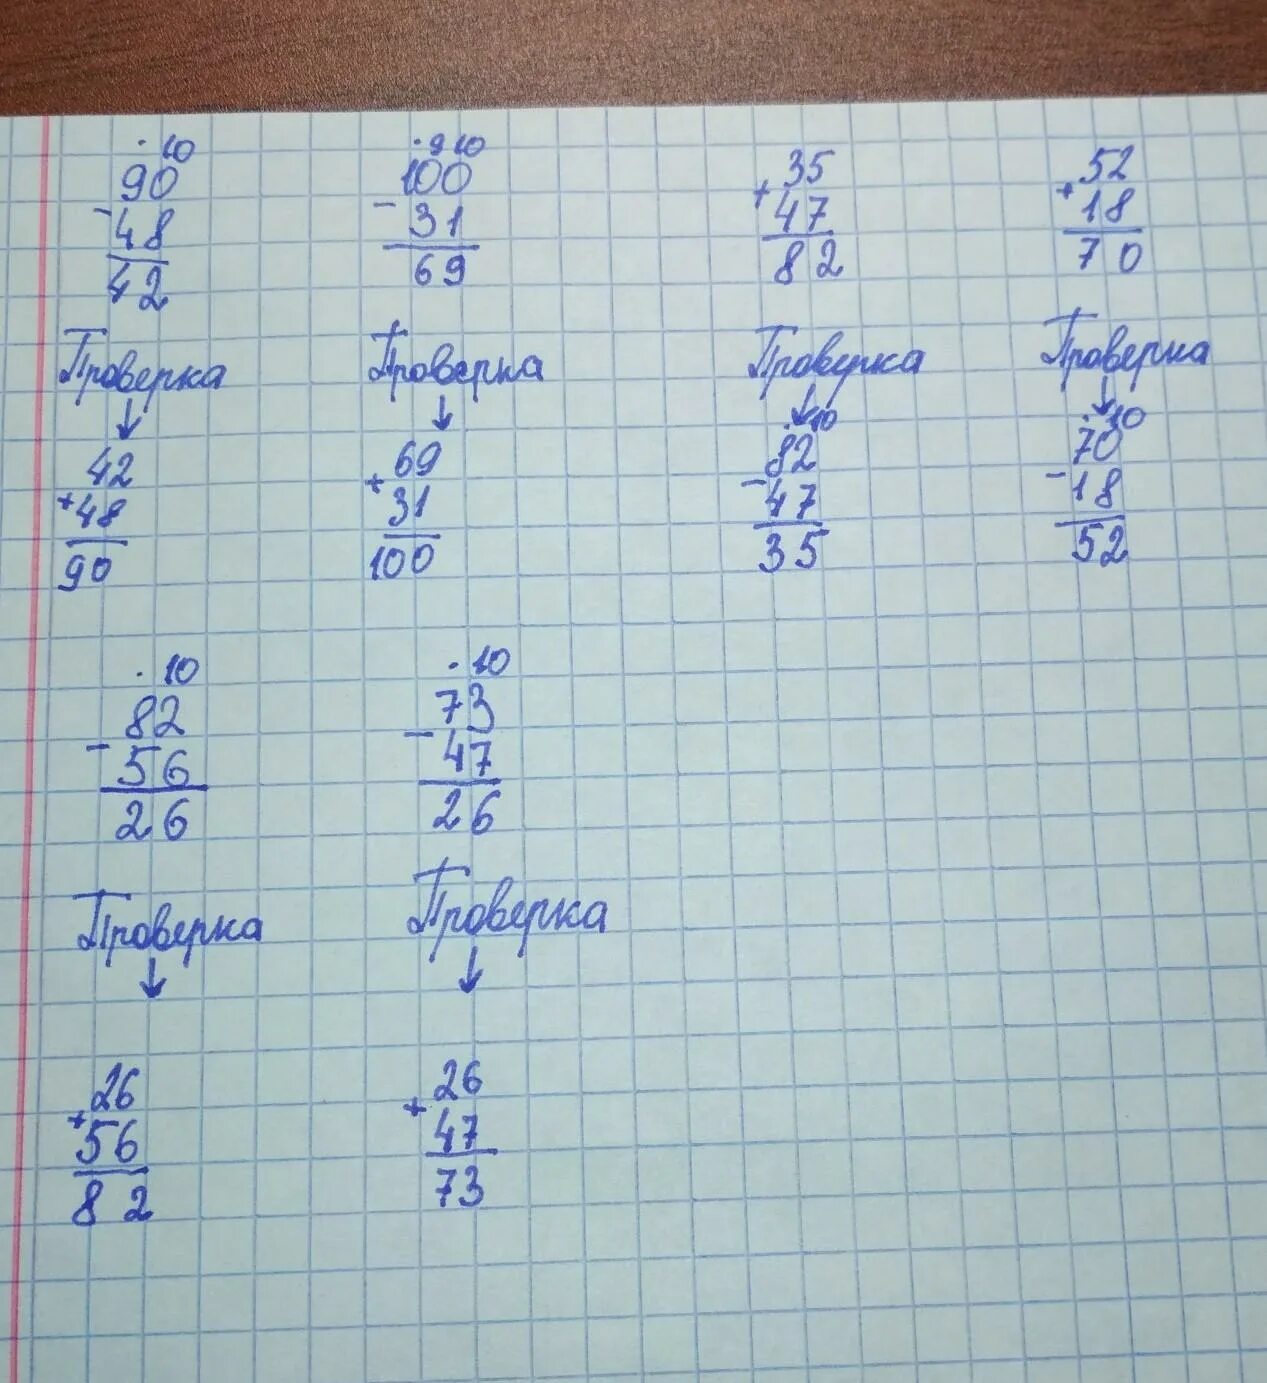 . 10 . 9 10
90 100 35 52
- - + +
48 31 47 18
42 69 82 70
Проверка Проверка Проверка Проверка
↓ ↓ ↓ ↓
. 10 . 10
42 69 82 70
+ + - -
48 31 47 18
90 100 35 52
. 10 . 10
82 73
- -
56 47
26 26
Проверка Проверка
↓ ↓
26 26
+ +
56 47
82 73